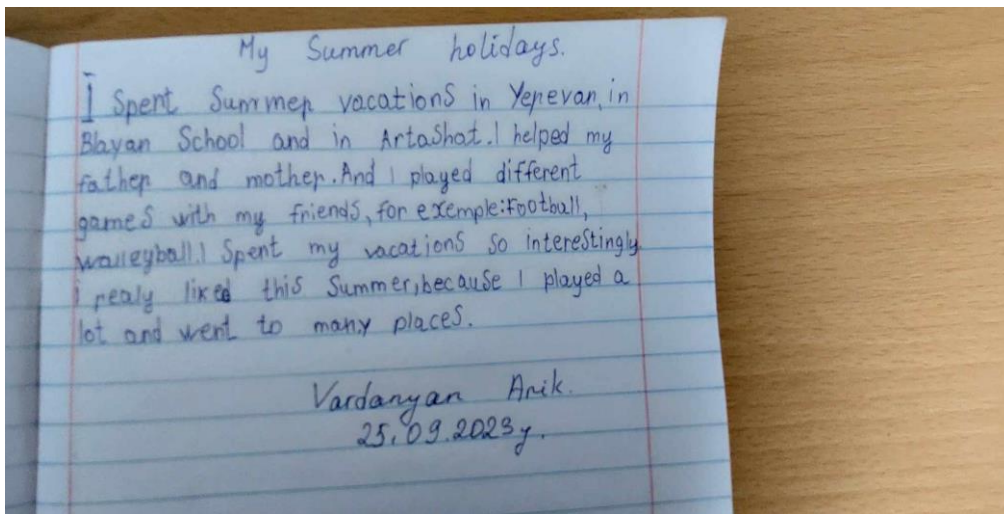 My Summer holidays.
I Spent Summer vacations in Yerevan, in
Blayan School and in Artashat. I helped my
father and mother. And I played different
games with my friends, for exemple: Football,
walleyball. I Spent my vacations so interestingly.
I realy liked this Summer, because I played a
lot and went to many places.
Vardanyan Arik.
25.09.2023y.